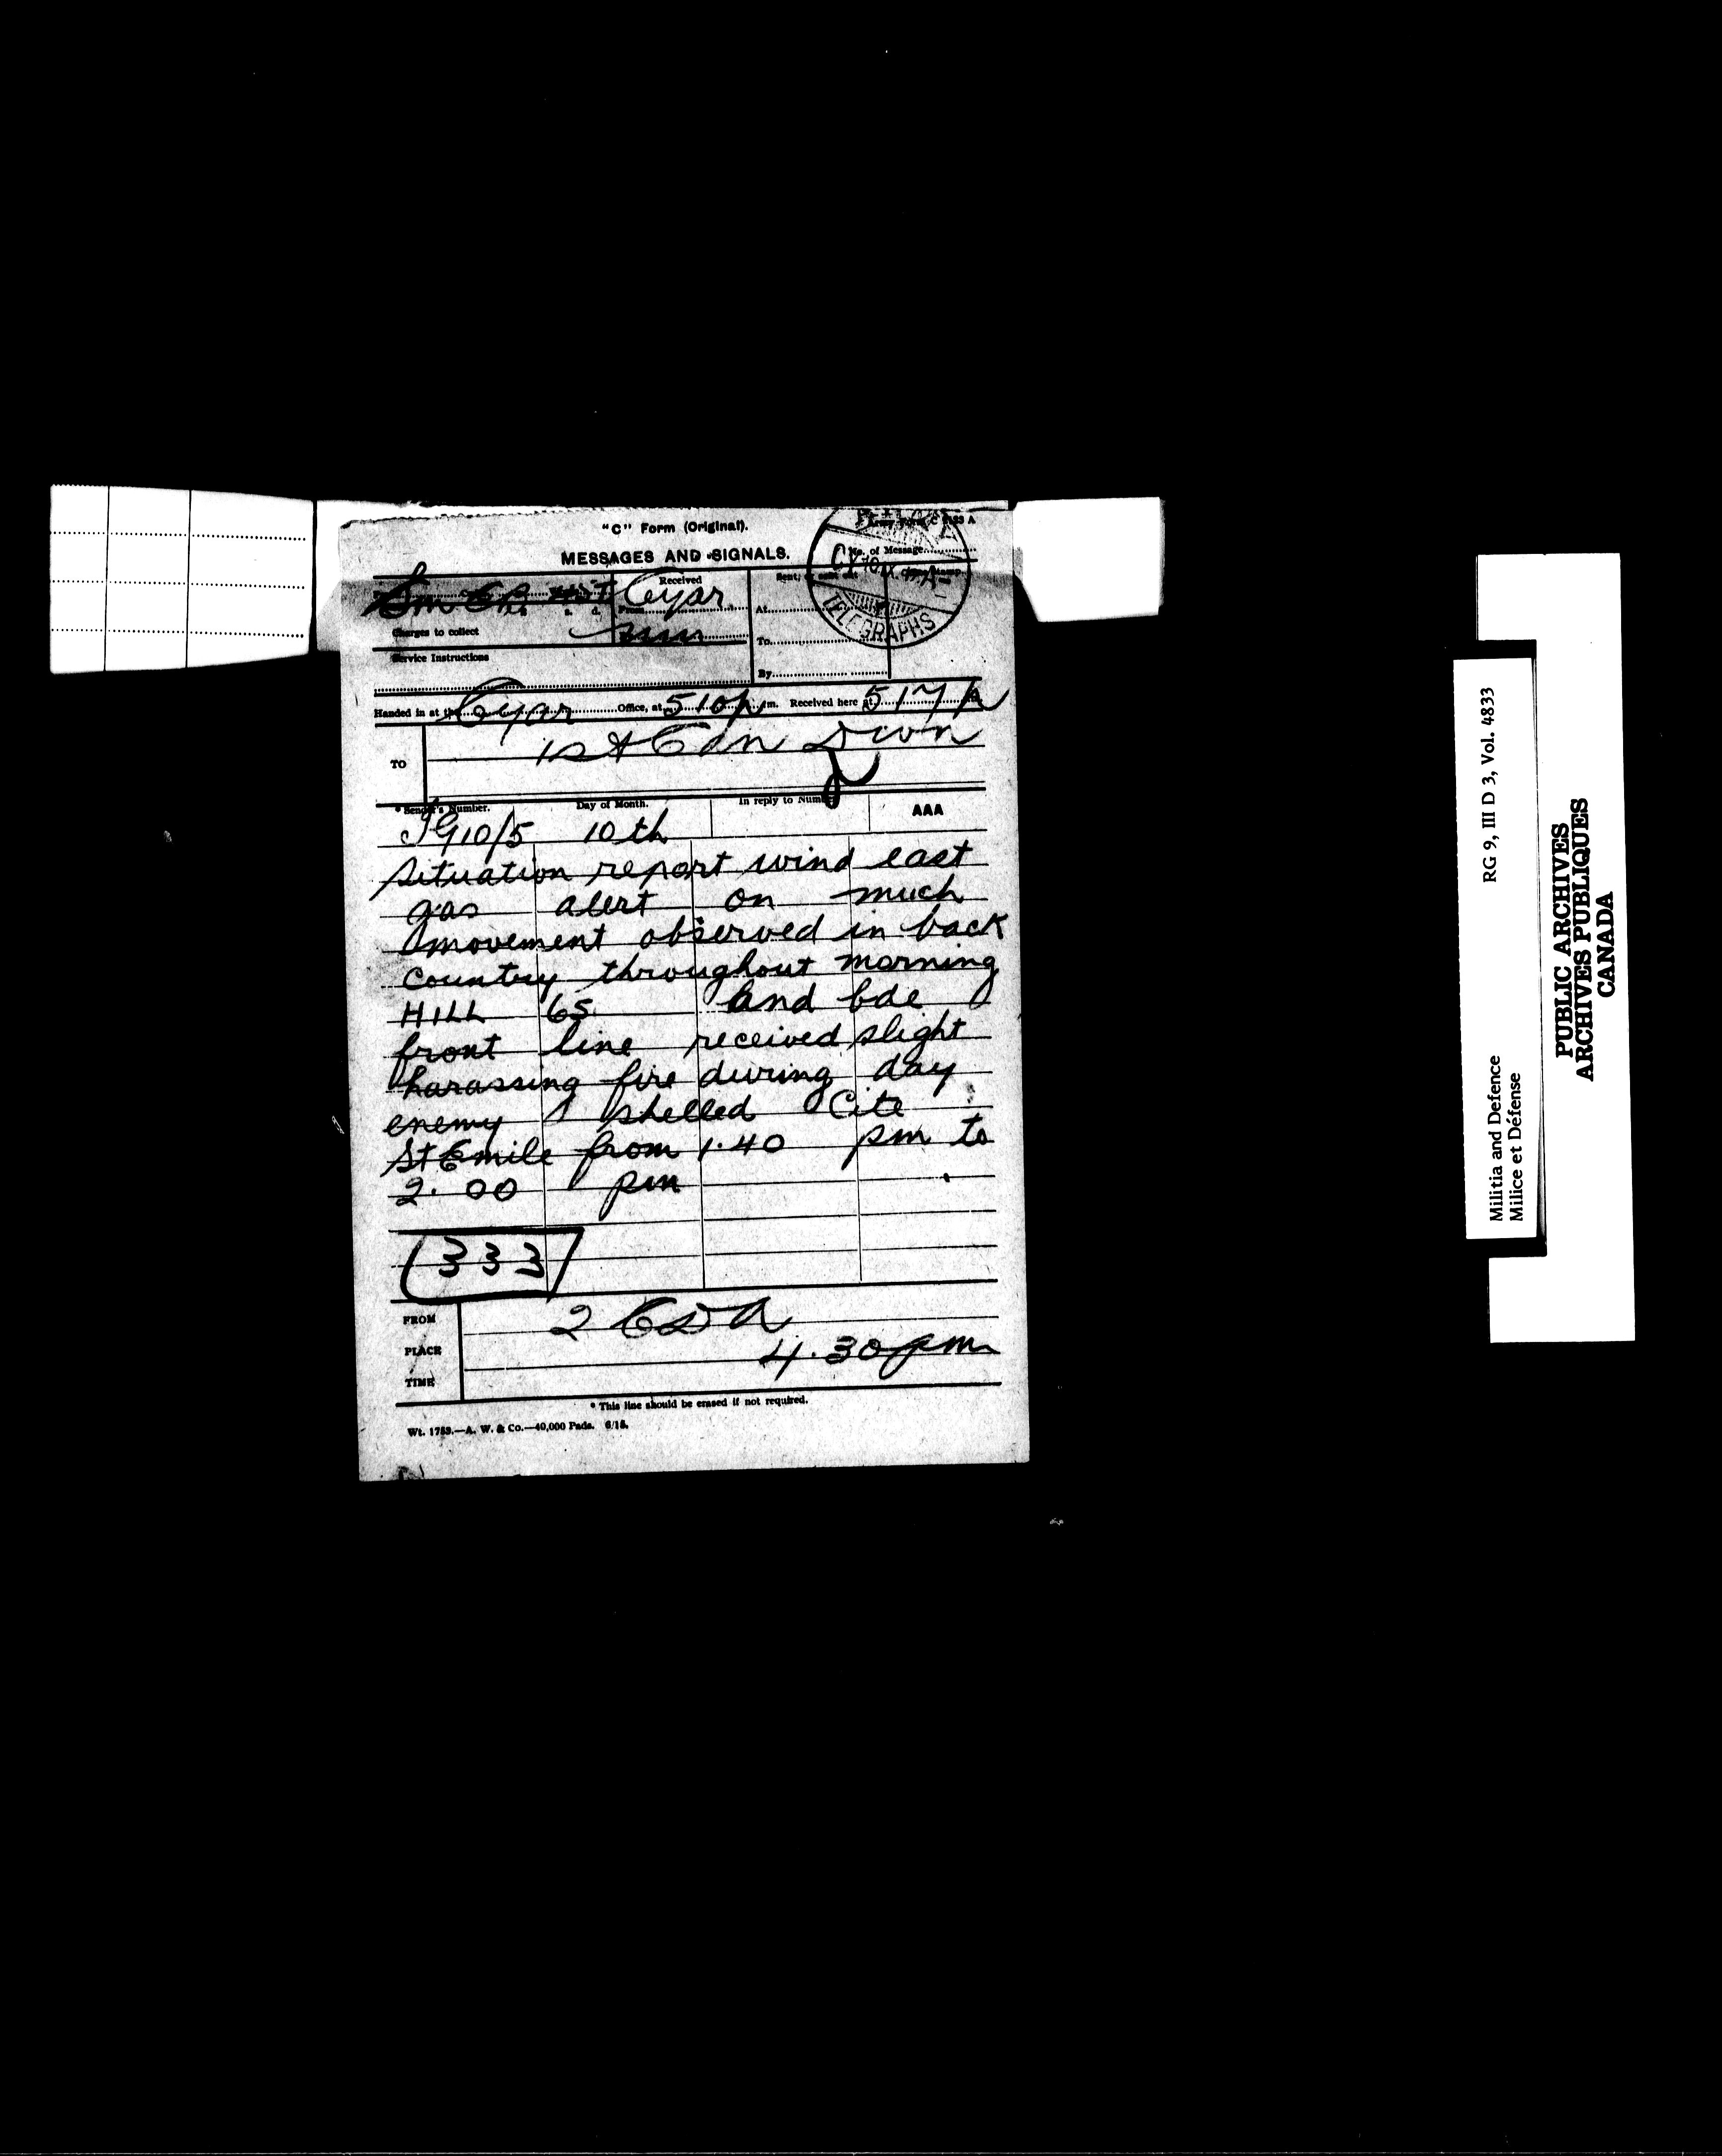 "C" Form (Original).
MESSAGES AND SIGNALS.
No. of Message
Received
From Cyar
Charges to collect
Service Instructions
At
To
By
TELEGRAPHS
Handed in at the Cyar Office, at 510p m. Received here at 517p
TO 1st Can Divn
* Sender's Number. Day of Month. In reply to Number AAA
10th
situation report wind east
gas alert on much
movement observed in back
country throughout morning
HILL 65 and bde
front line received slight
harassing fire during day
enemy shelled Cite
St Emile from 1.40 pm to
2.00 pm
333
FROM 2 CDA
PLACE
TIME 4.30pm
* This line should be erased if not required.
Wt. 1753.—A. W. & Co.—40,000 Pads. 6/15.
Militia and Defence RG 9, III D 3, Vol. 4833
Milice et Défense
PUBLIC ARCHIVES
ARCHIVES PUBLIQUES
CANADA